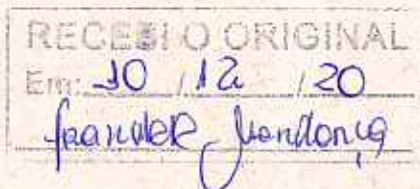 RECEBI O ORIGINAL
Em: 10 / 12 / 20
Mendonça